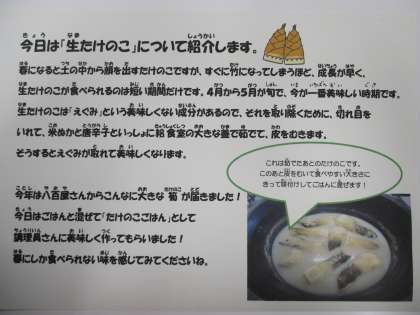 今日は「生たけのこ」について紹介します。
春になると土の中から顔を出すたけのこですが、すぐに竹になってしまうほど、成長が早く、
生たけのこが食べられるのは短い期間だけです。4月から5月が旬で、今が一番美味しい時期です。
生たけのこは「えぐみ」という美味しくない成分があるので、それを取り除くために、切れ目を
いれて、米ぬかと唐辛子といっしょに給食室の大きな釜で茹でて、皮をむきます。
そうするとえぐみが取れて美味しくなります。
これは茹でたあとのたけのこです。
このあと皮をむいて食べやすい大きさに
きって味付けしてごはんに混ぜます！
今年は八百屋さんからこんなに大きな筍が届きました！
今日はごはんと混ぜて「たけのこごはん」として
調理員さんに美味しく作ってもらいました！
春にしか食べられない味を感じてみてくださいね。